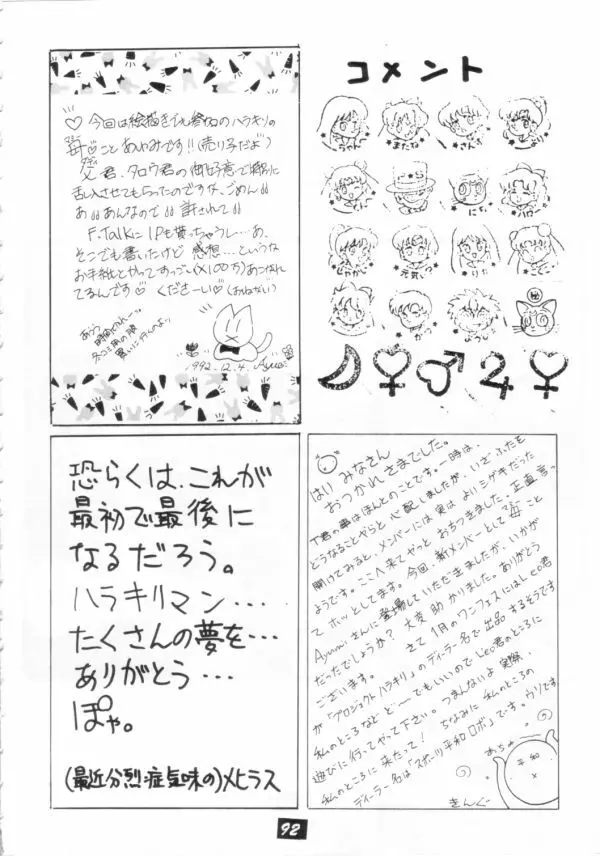 コメント
♡今回は絵描きでも登場のハラキリの
苺♡ことあゆみです!!(売り子だよ)
父君、タロウ君の御好意で
乱入させてもらったのですケド、ごめん!!
あ!!あんなので!!許されて!!
F.Talkに1Pも貰っちゃうし…あ、
そこでも書いたけど 感想…というな
お手紙とやってすっごい(×100万)あこがれ
てるんです♡ くださーい♡(おねがい)
1992.12.4. Ayumi
恐らくは、これが
最初で最後に
なるだろう。
ハラキリマン・・・
たくさんの夢を・・・
ありがとう・・・
ぽや。
(最近分烈症気味の)メヒラス
はい みなさん
おつかれさまでした。
T君の事はほんとのことです。一時は、
どうなることやらと心配しましたが、いざ ふたを
開けてみると、メンバーには実は よいシゲキだった
ようです。ここへ来てやっと おちつきました。正直言っ
て ホッとしてます。今回、新メンバーとして 苺こと
Ayumiさんに登場していただきましたが、いかが
だったでしょうか? 大変助かりました。ありがとう
ございます。 さて 1月のワンフェスにはLeo君
が「プロジェクトハラキリ」のディーラー名で出品するそうです
私のところなど どーでもいいのでLeo君のところに
遊びに行ってやって下さい。つまんないよ 実際、
私のところに来たって! ちなみに 私のところの
ディーラー名は「スポーツ平和ロボ」です。ウソです
めちゃ
平和
きんぐ
92